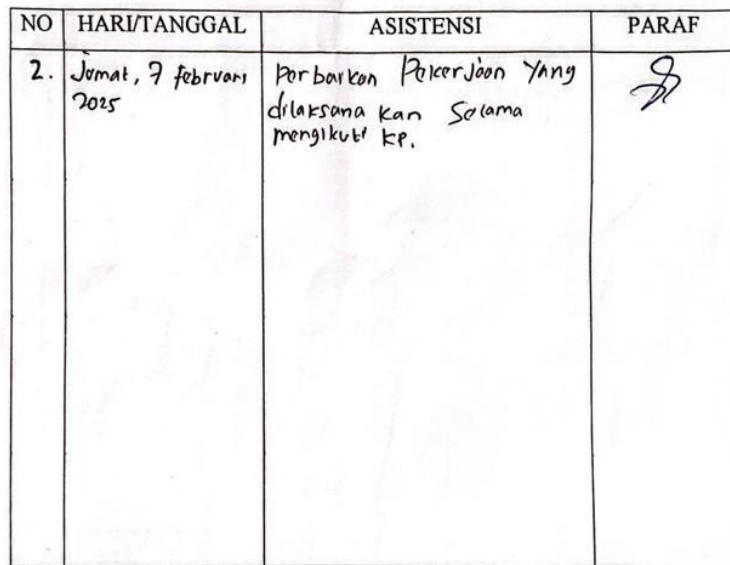 NO HARI/TANGGAL ASISTENSI PARAF
2. Jumat, 7 februari 2025
Perbaikan Pekerjaan Yang
dilaksana kan Selama
mengikuti KP.